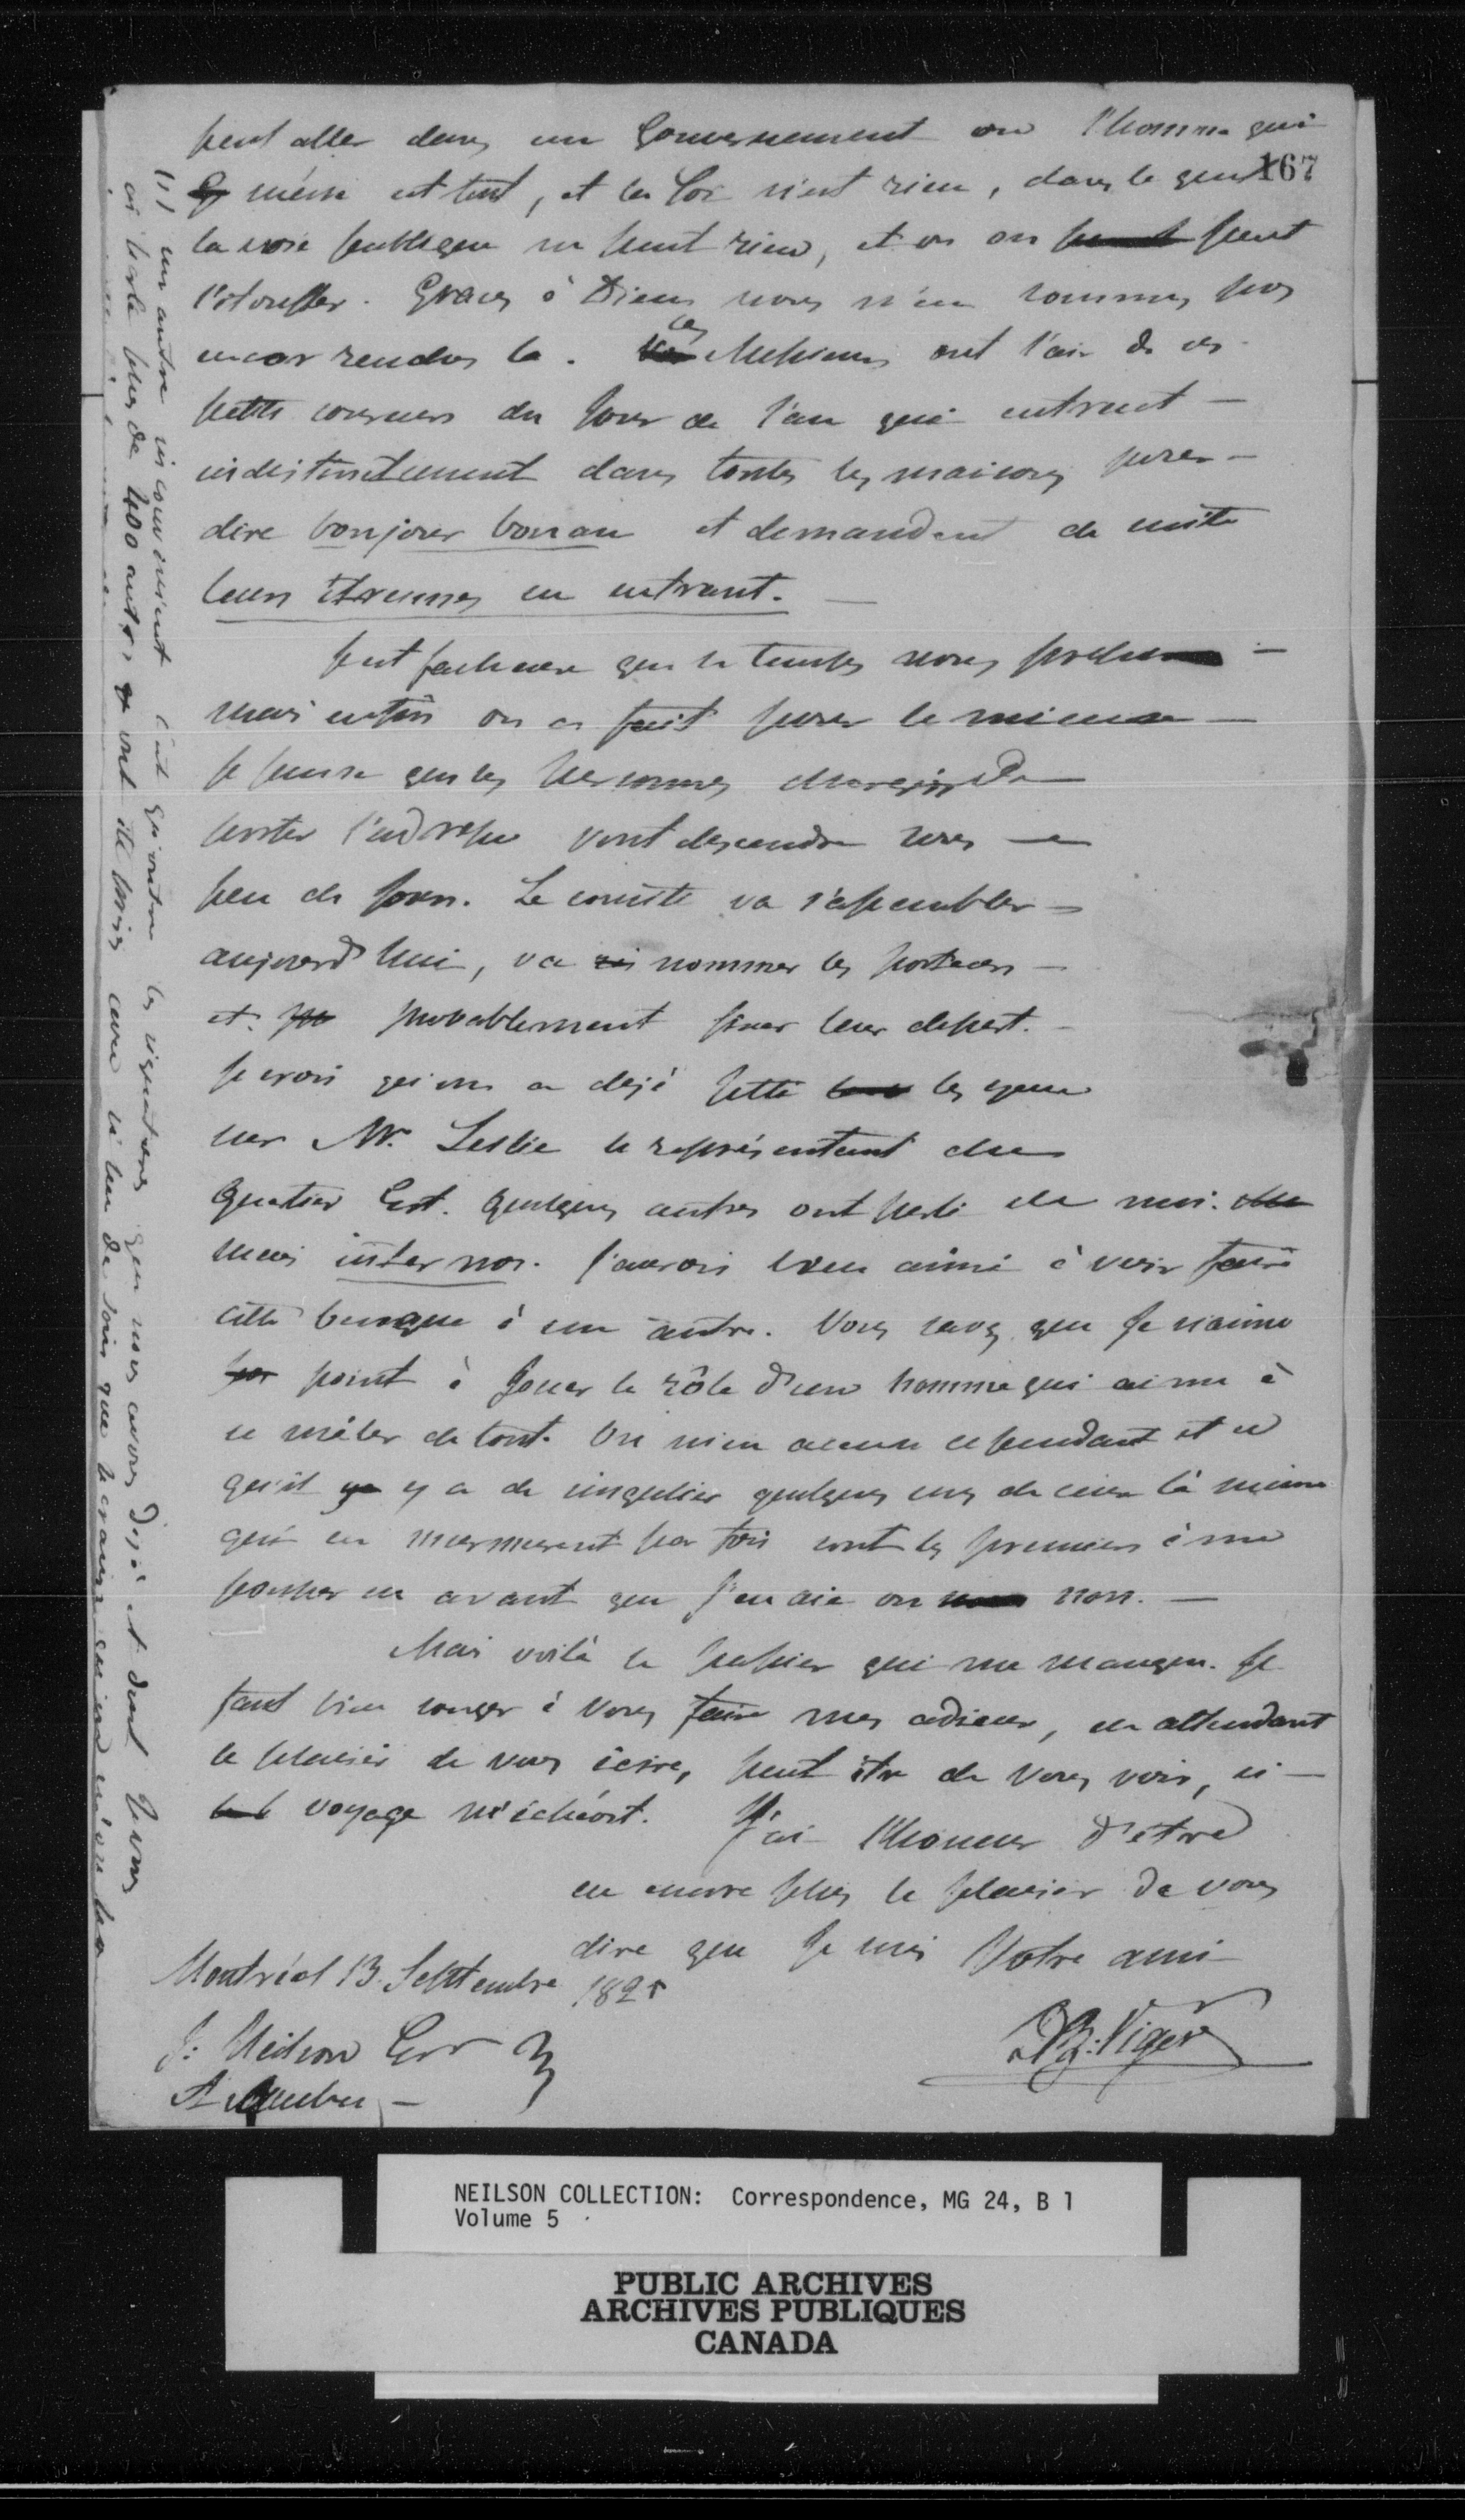 167
peut aller dans un Gouvernement ou l'homme qui
mène est tout, et la Loi n'est rien, dans le quel
la voix publique ne peut rien, et ou on peut
l'étouffer. Graces à Dieu nous n'en sommes pas
encor rendus la. ces Messieurs ont l'air de ces
petits coureurs du Jour de l'an qui entrent
indistinctement dans toutes les maisons pour
dire bonjour bon an et demandent de suite
leurs étrennes en entrant.
que le temps nous
mais enfin on a fait pour le mieux
Je pense que les personnes chargées de
porter l'adresse vont descendre sous
peu de Jours. Le comité va s'assembler
aujourd'hui, va nommer les porteurs
et probablement fixer leur depart.
Je crois qu'on a déjà jetté les yeux
sur Mr. Leslie le représentant du
Quartier Est. Quelques autres ont parlé de moi.
mais inter nos. J'aurois bien aimé à voir faire
cette besogne à un autre. Vous savez que Je n'aime
point à Jouer le rôle d'un homme qui aime à
se mêler de tout. On m'en accuse cependant et ce
qu'il y a de singulier quelques uns de ceux là même
qui en murmurent par fois sont les premiers à me
pousser en avant que J'en aie ou non.
Mais voilà le papier qui me manque. Il
faut bien songer à vous faire mes adieux, en attendant
le plaisir de vous écrire, peut être de vous voir, si
le voyage m'échéoit. J'ai l'honneur d'être
encore plus le plaisir de vous
dire que Je suis Votre ami
Montréal 13 Septembre 1828
D. B. Viger
J. Neilson Ecr
A Quebec
(1) un autre inconvénient c'est qu'outre les signatures que nous avons déjà et dont Je vous
ai parlé plus de 400 autres
NEILSON COLLECTION: Correspondence, MG 24, B 1
Volume 5
PUBLIC ARCHIVES
ARCHIVES PUBLIQUES
CANADA